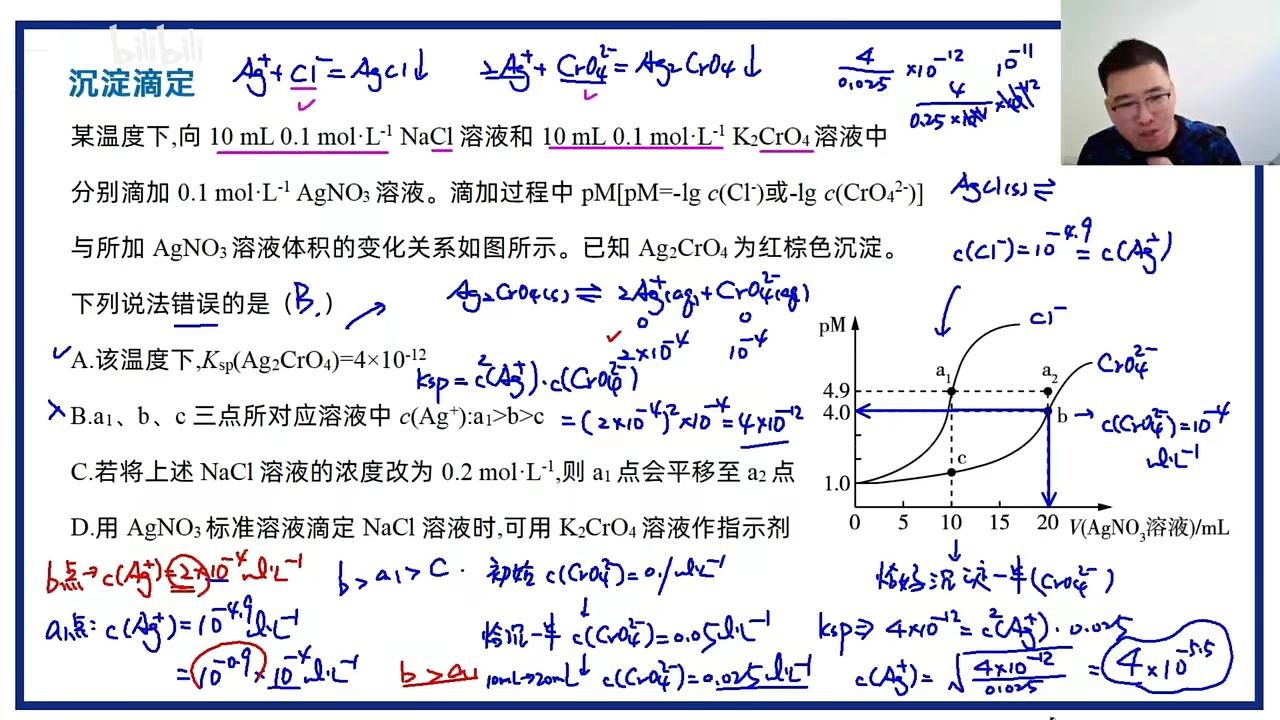 bilibili
沉淀滴定
Ag⁺ + Cl⁻ = AgCl↓ 2Ag⁺ + CrO₄²⁻ = Ag₂CrO₄↓
4/0.025 ×10⁻¹² 10⁻¹¹
某温度下,向 10 mL 0.1 mol·L⁻¹ NaCl 溶液和 10 mL 0.1 mol·L⁻¹ K₂CrO₄ 溶液中
分别滴加 0.1 mol·L⁻¹ AgNO₃ 溶液。滴加过程中 pM[pM=-lg c(Cl⁻)或-lg c(CrO₄²⁻)]
AgCl(s) ⇌
与所加 AgNO₃ 溶液体积的变化关系如图所示。已知 Ag₂CrO₄ 为红棕色沉淀。
c(Cl⁻)=10⁻⁴·⁹ = c(Ag⁺)
下列说法错误的是（B.）
Ag₂CrO₄(s) ⇌ 2Ag⁺(aq) + CrO₄²⁻(aq)
0 0
2×10⁻⁴ 10⁻⁴
A.该温度下,Ksp(Ag₂CrO₄)=4×10⁻¹²
Ksp = c²(Ag⁺)·c(CrO₄²⁻)
B.a₁、b、c 三点所对应溶液中 c(Ag⁺):a₁>b>c
= (2×10⁻⁴)²×10⁻⁴ = 4×10⁻¹²
C.若将上述 NaCl 溶液的浓度改为 0.2 mol·L⁻¹,则 a₁ 点会平移至 a₂ 点
D.用 AgNO₃ 标准溶液滴定 NaCl 溶液时,可用 K₂CrO₄ 溶液作指示剂
pM
Cl⁻
CrO₄²⁻
a₁ a₂
4.9
4.0
b → c(CrO₄²⁻)=10⁻⁴
mol·L⁻¹
c
1.0
0 5 10 15 20 V(AgNO₃溶液)/mL
b点→c(Ag⁺)=2×10⁻⁴mol·L⁻¹
b>a₁>c.
初始 c(CrO₄²⁻)=0.1mol·L⁻¹
恰好沉淀一半(CrO₄²⁻)
a₁点: c(Ag⁺)=10⁻⁴·⁹mol·L⁻¹
恰沉一半 c(CrO₄²⁻)=0.05mol·L⁻¹
Ksp⇒ 4×10⁻¹²=c²(Ag⁺)·0.025
=10⁻⁰·⁹×10⁻⁴mol·L⁻¹
b>a₁
10mL→20mL c(CrO₄²⁻)=0.025mol·L⁻¹
c(Ag⁺)=√(4×10⁻¹²/0.025) = 4×10⁻⁵·⁵